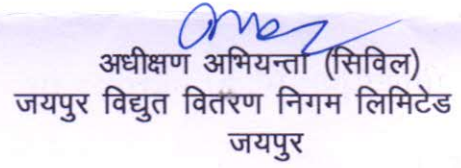 अधीक्षण अभियन्ता (सिविल)
जयपुर विद्युत वितरण निगम लिमिटेड
जयपुर